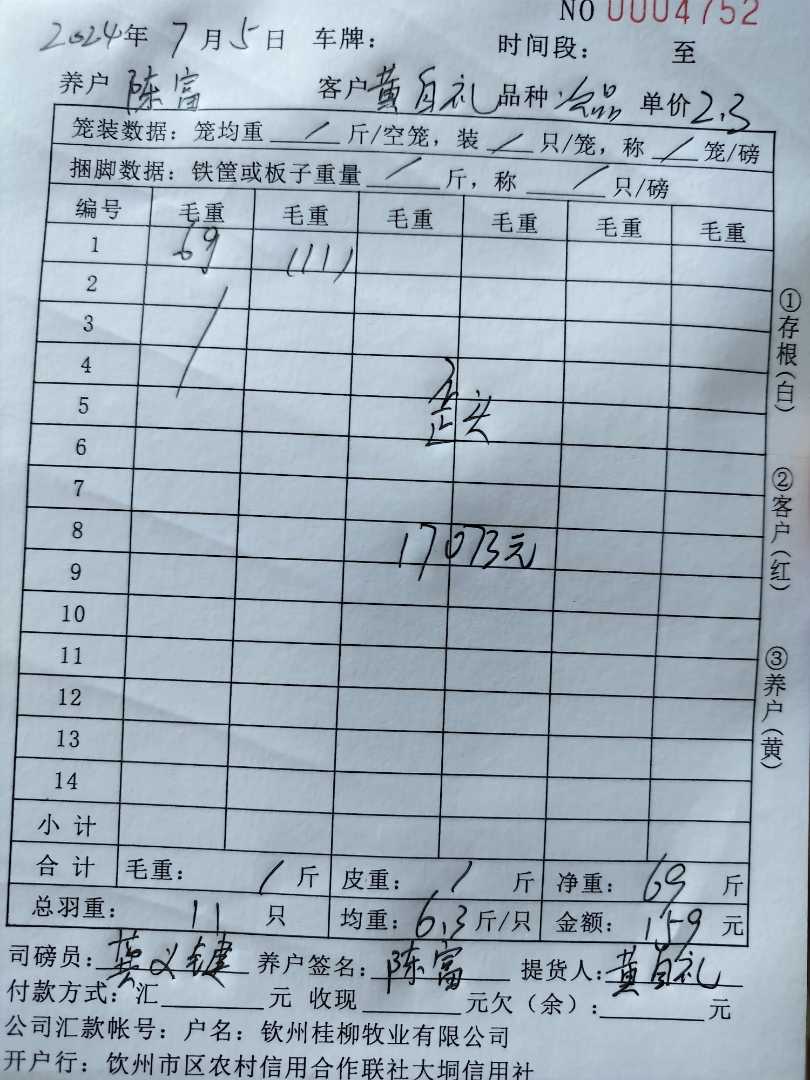 NO 0004752
2024年 7月5日 车牌： 时间段： 至
养户 陈富 客户 黄自礼 品种 次品 单价 2.3
笼装数据：笼均重 / 斤/空笼，装 / 只/笼，称 / 笼/磅
捆脚数据：铁筐或板子重量 / 斤，称 / 只/磅
编号 毛重 毛重 毛重 毛重 毛重 毛重
1 69 (11)
2
3
4
5 歪头
6
7
8 17073元
9
10
11
12
13
14
小计
合计 毛重： / 斤 皮重： / 斤 净重： 69 斤
总羽重： 11 只 均重： 6.3 斤/只 金额： 159 元
司磅员： 龚义键 养户签名： 陈富 提货人： 黄自礼
付款方式：汇 元 收现 元欠（余）： 元
公司汇款帐号：户名：钦州桂柳牧业有限公司
开户行：钦州市区农村信用合作联社大垌信用社
①存根（白）
②客户（红）
③养户（黄）